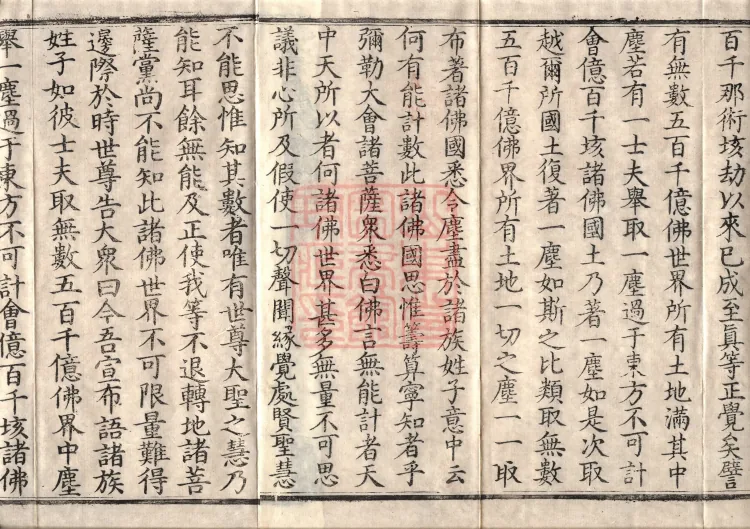 百千那術垓劫以來已成至真等正覺矣譬
有無數五百千億佛世界所有土地滿其中
塵若有一士夫舉取一塵過于東方不可計
會億百千垓諸佛國土乃著一塵如是次取
越爾所國土復著一塵如斯之比類取無數
五百千億佛界所有土地一切之塵一一取
布著諸佛國悉令塵盡於諸族姓子意中云
何有能計數此諸佛國思惟籌算寧知者乎
彌勒大會諸菩薩衆悉白佛言無能計者天
中天所以者何諸佛世界甚多無量不可思
議非心所及假使一切聲聞緣覺處賢聖慧
不能思惟知其數者唯有世尊大聖之慧乃
能知耳餘無能及正使我等不退轉地諸菩
薩黨尚不能知此諸佛世界不可限量難得
邊際於時世尊告大衆曰今吾宣布語諸族
姓子如彼士夫取無數五百千億佛界中塵
舉一塵過于東方不可計會億百千垓諸佛